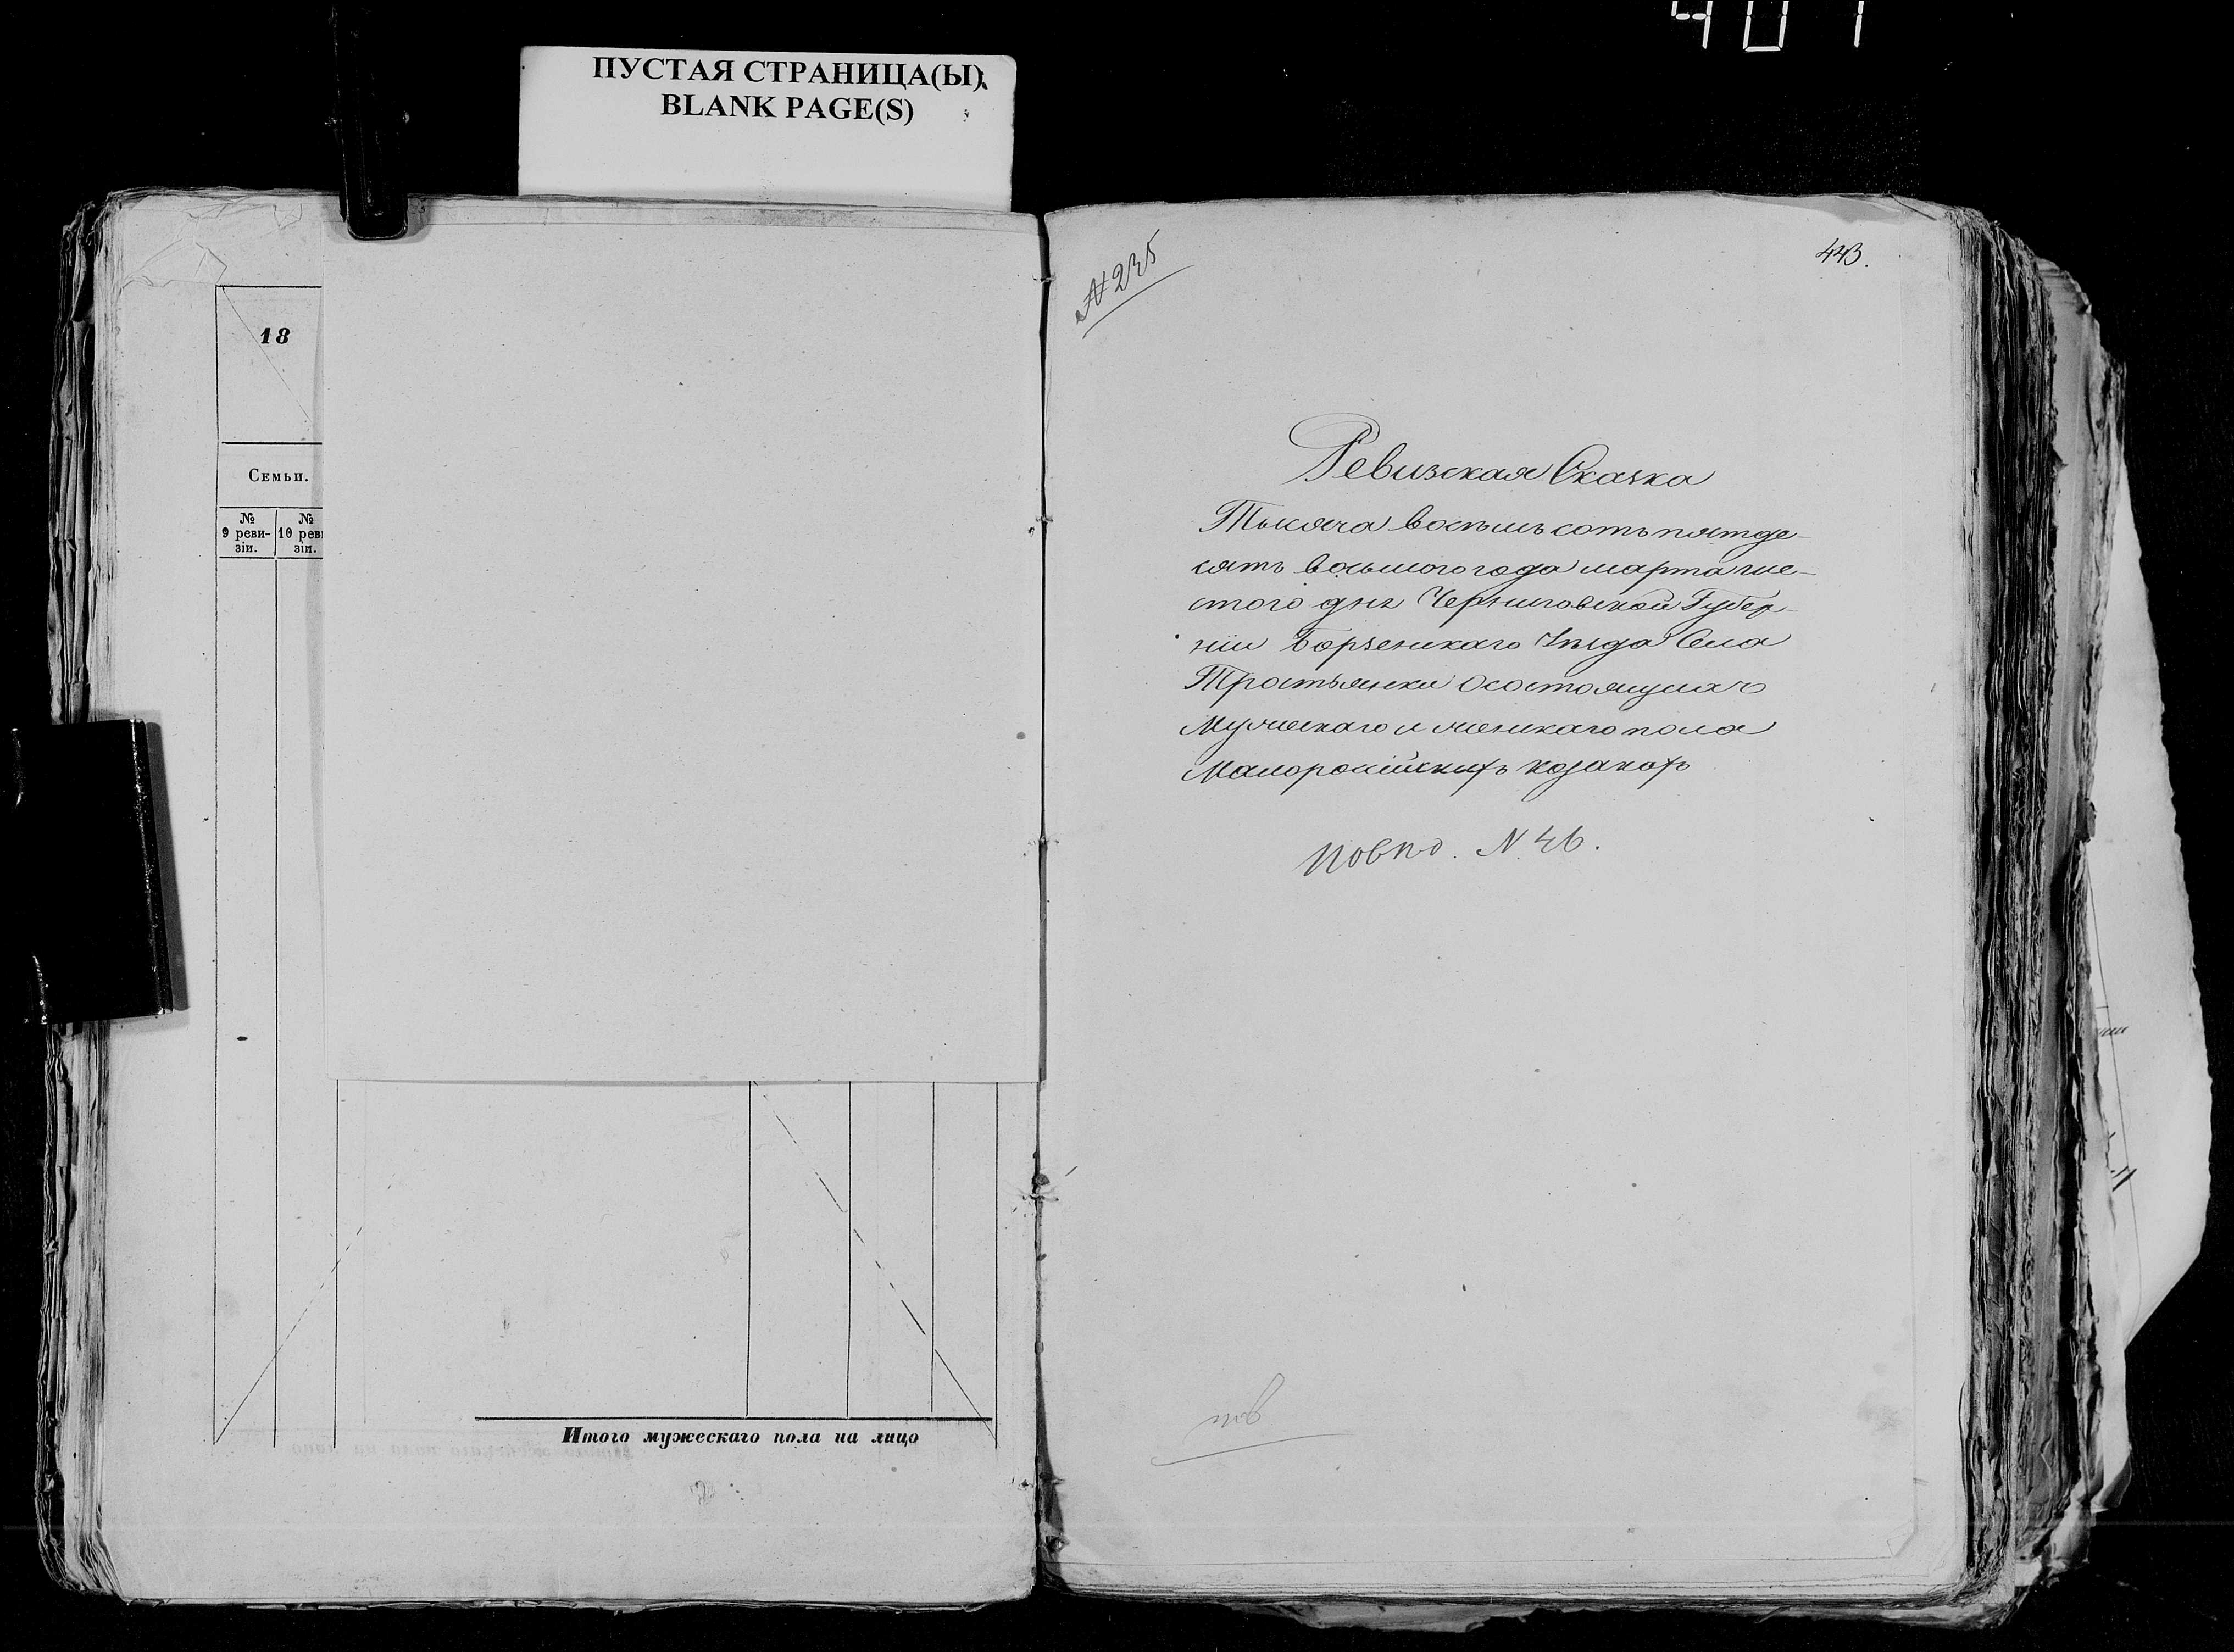 401
ПУСТАЯ СТРАНИЦА(Ы).
BLANK PAGE(S)
18
Семьи.
№ 9 реви-зіи.
№ 10 реви
зіи.
Итого мужескаго пола на лицо
2
№ 245
443.
Ревизская Сказка
Тысяча восемь сотъ пятде-
сятъ восьмого года марта ше-
стого дня Черниговской Губер-
ніи Борзенскаго Уезда Села
Тростьянки О состоящихъ
Мужескаго и женскаго пола
Малоросійскихъ козакахъ
N 46.
пов